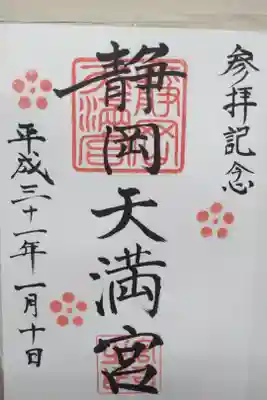 参拝記念
静岡天満宮
平成三十一年一月十日